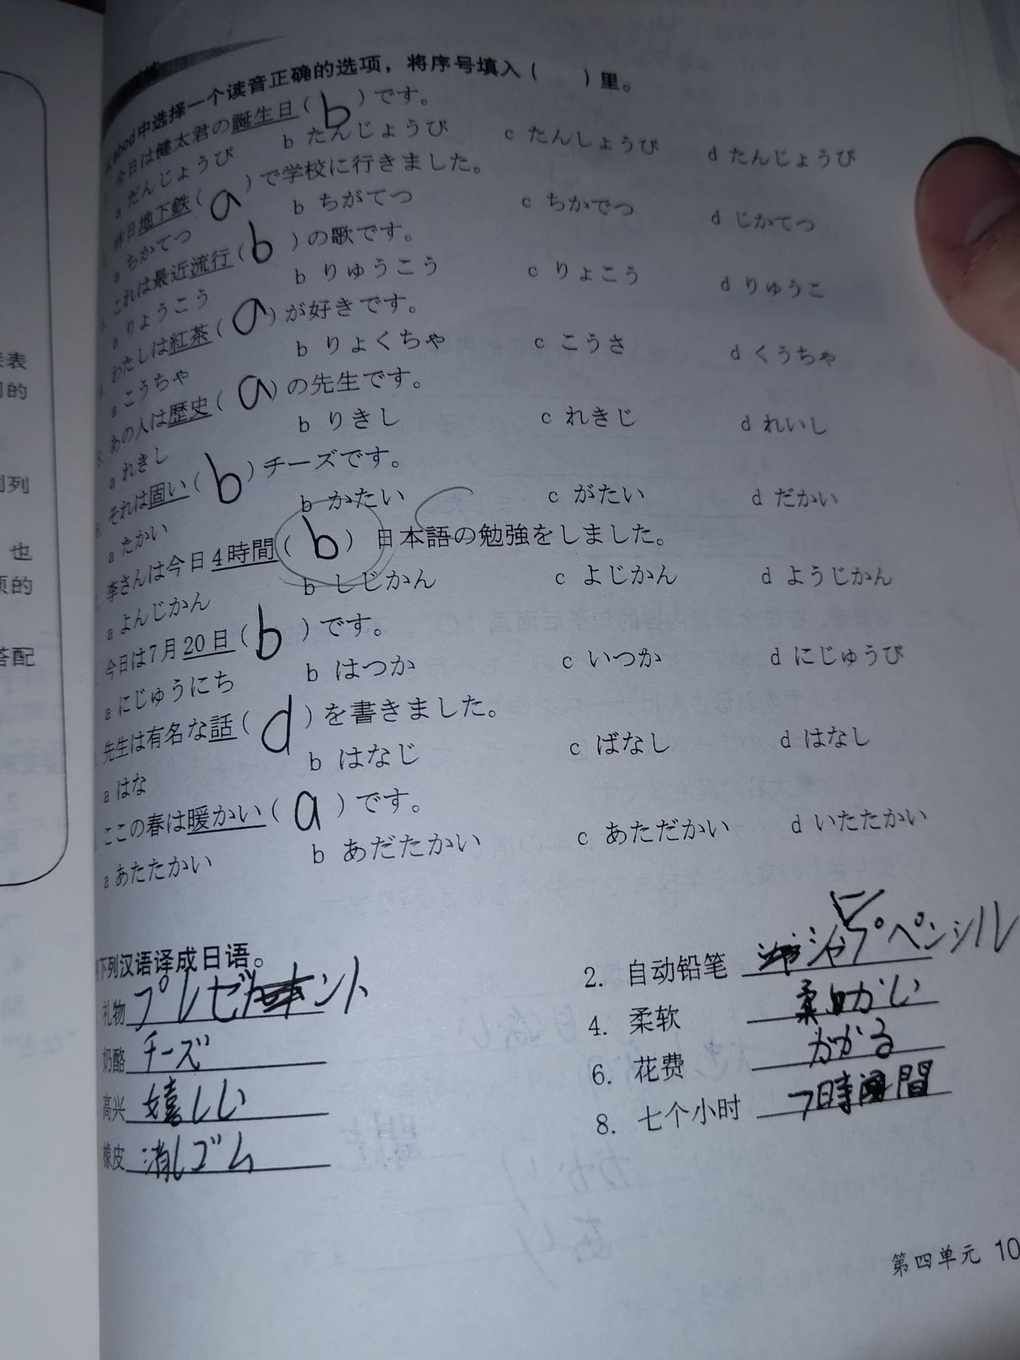 表
的
列
也
页的
搭配
abcd中选择一个读音正确的选项，将序号填入（ ）里。
今日は健太君の誕生日（b）です。
a だんじょうび b たんじょうび c たんしょうび d たんじょうぴ
昨日地下鉄（a）で学校に行きました。
a ちかてつ b ちがてつ c ちかでつ d じかてつ
これは最近流行（b）の歌です。
a りょうこう b りゅうこう c りょこう d りゅうこ
わたしは紅茶（a）が好きです。
a こうちゃ b りょくちゃ c こうさ d くうちゃ
あの人は歴史（a）の先生です。
a れきし b りきし c れきじ d れいし
それは固い（b）チーズです。
a たかい b かたい c がたい d だかい
李さんは今日4時間（b）日本語の勉強をしました。
a よんじかん b しじかん c よじかん d ようじかん
今日は7月20日（b）です。
a にじゅうにち b はつか c いつか d にじゅうび
先生は有名な話（d）を書きました。
a はな b はなじ c ばなし d はなし
ここの春は暖かい（a）です。
a あたたかい b あだたかい c あただかい d いたたかい
下列汉语译成日语。
礼物 プレゼント 2. 自动铅笔 シャープペンシル
奶酪 チーズ 4. 柔软 柔らかい
高兴 嬉しい 6. 花费 かかる
橡皮 消しゴム 8. 七个小时 7時間
第四单元 10